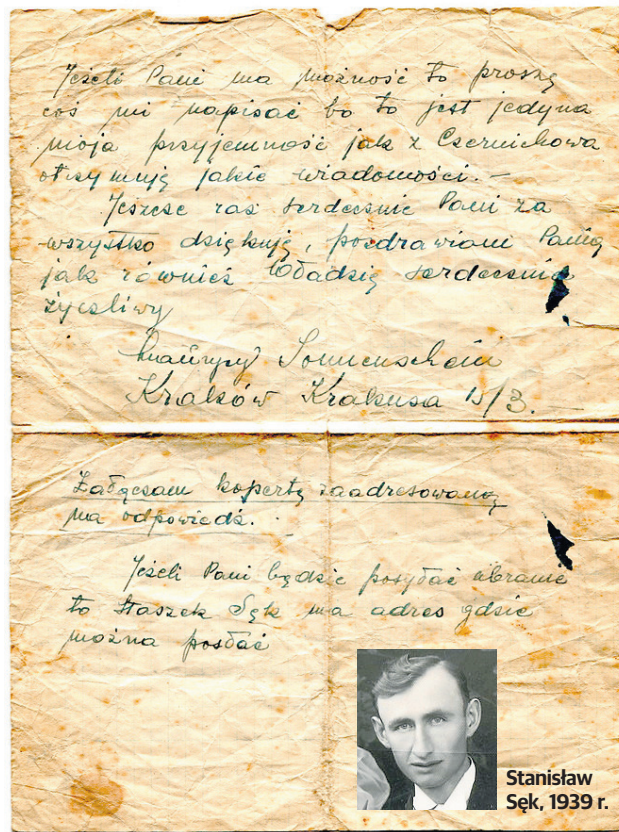 Jeżeli Pani ma możność to proszę
coś mi napisać bo to jest jedyna
moja przyjemność jak z Czernichowa
otrzymuję jakie wiadomości. –
Jeszcze raz serdecznie Pani za
wszystko dziękuję, pozdrawiam Panią
jak również Władzię serdecznie
życzliwy
Maurycy Sonnenschein
Kraków Krakusa 15/3. –
Załączam kopertę zaadresowaną
na odpowiedź.
Jeżeli Pani będzie posyłać ubranie
to Staszek Sęk ma adres gdzie
można posłać
Stanisław
Sęk, 1939 r.